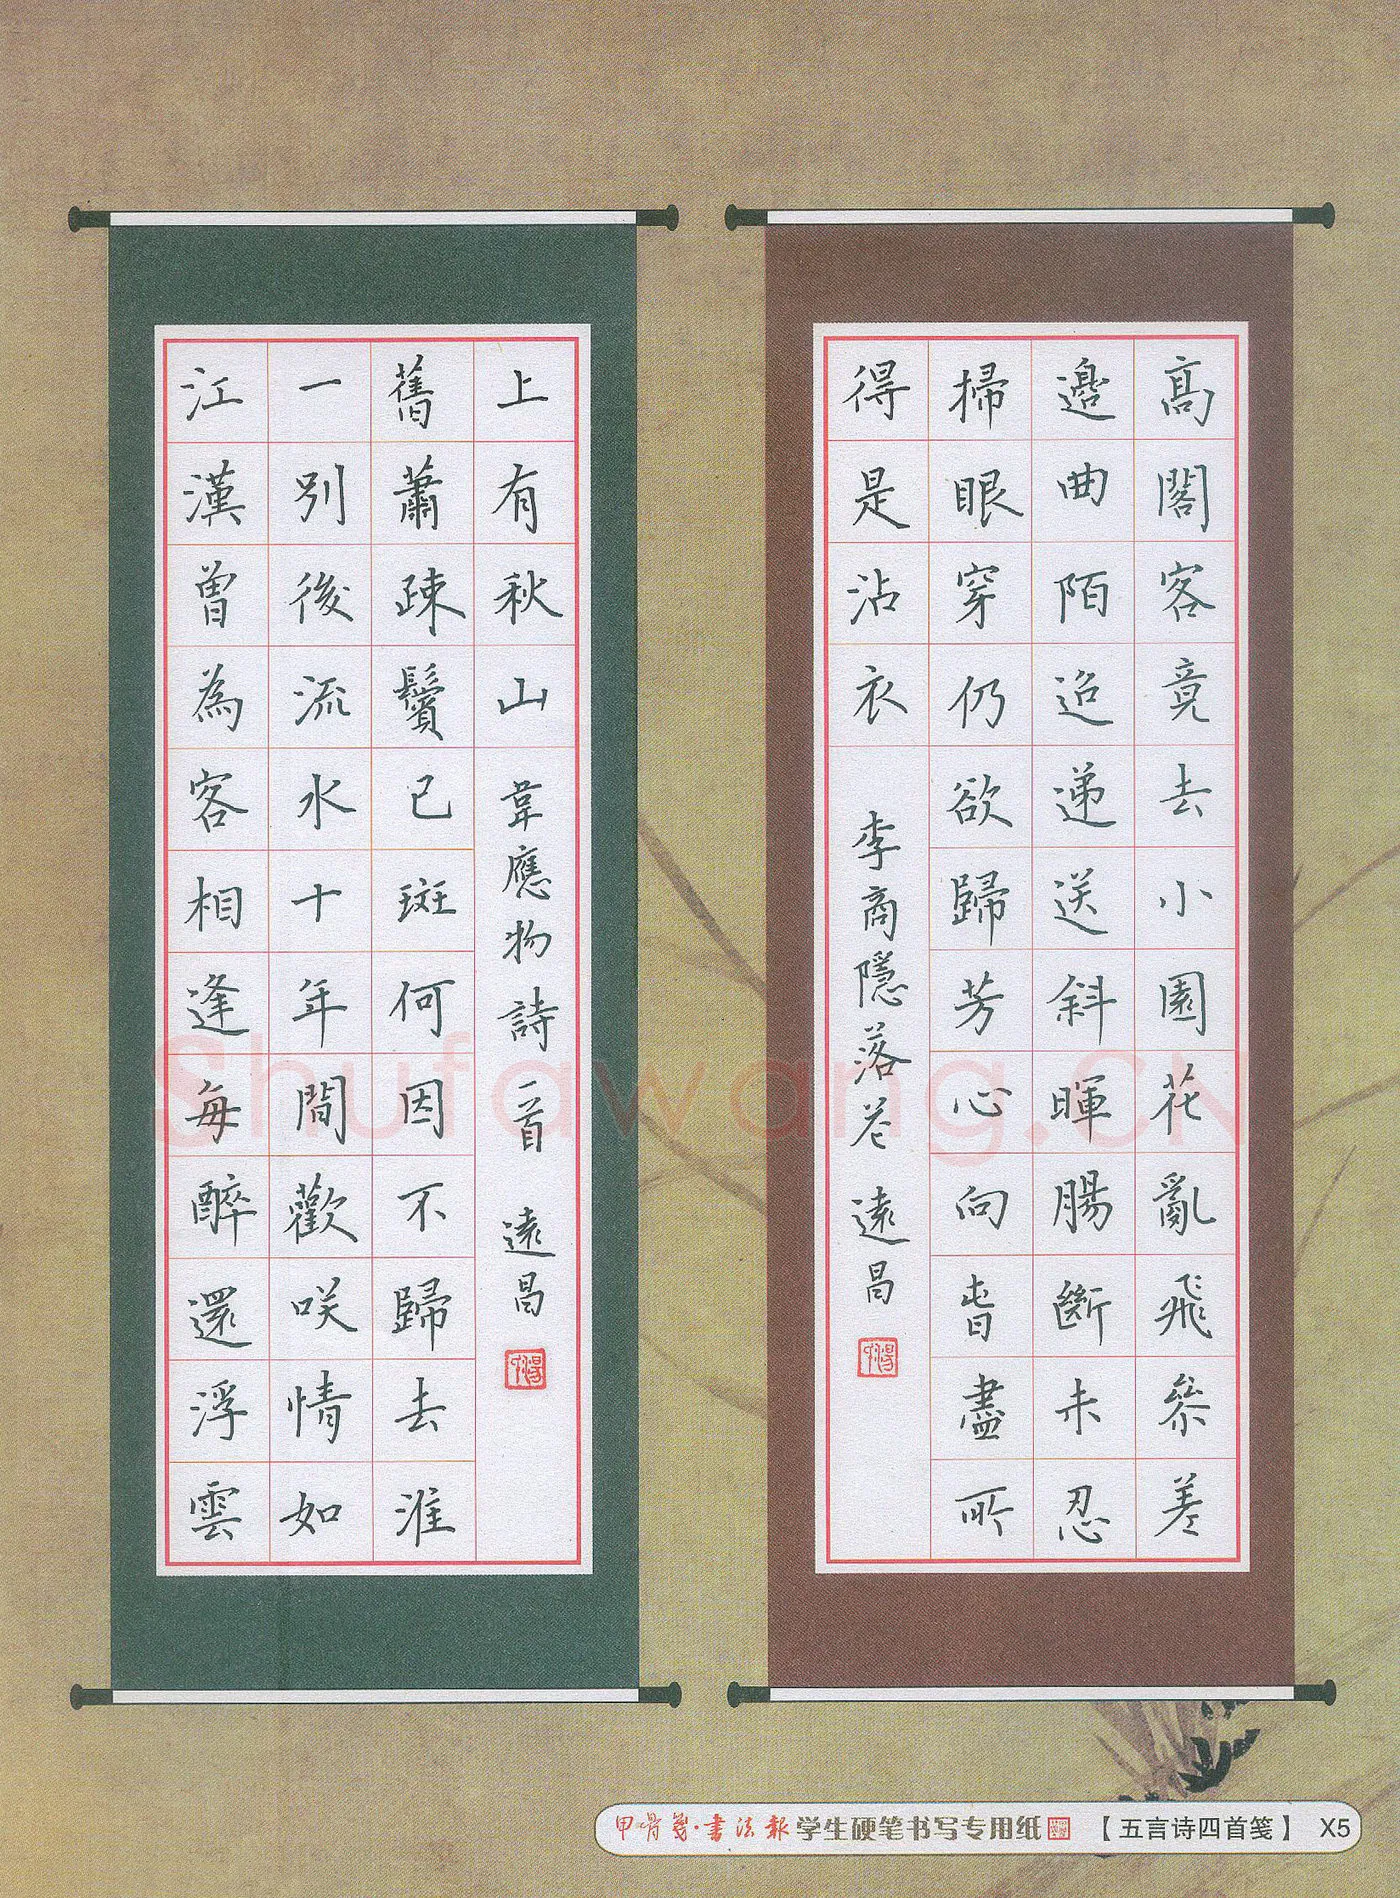 髙閣客竟去小園花亂飛參差
邊曲陌迢递送斜暉腸斷未忍
掃眼穿仍欲歸芳心向春盡所
得是沾衣 李商隱落花 遠昌
江漢曾為客相逢每醉還浮雲
一別後流水十年間歡咲情如
舊蕭疎鬢已斑何因不歸去淮
上有秋山 韋應物詩一首 遠昌
Shufawang.CN
甲骨箋·書法報 学生硬笔书写专用纸 【五言诗四首笺】 X5